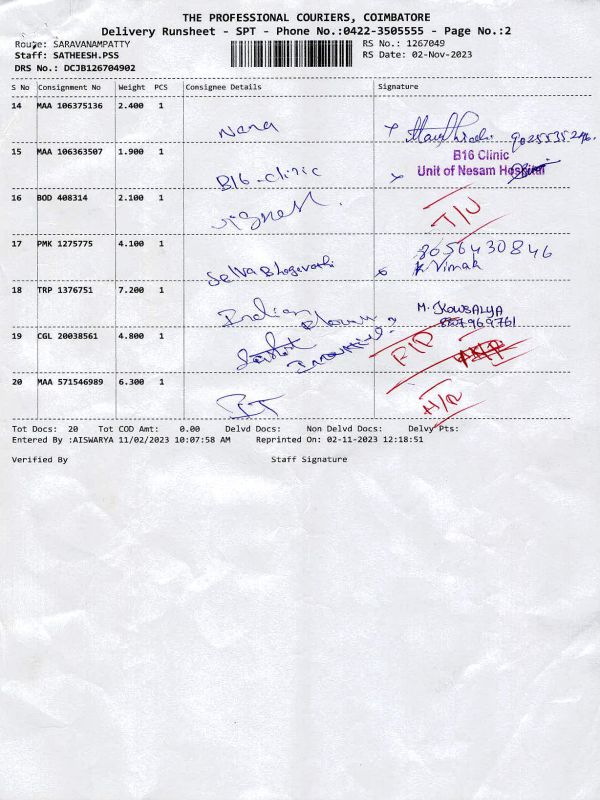 THE PROFESSIONAL COURIERS, COIMBATORE
Delivery Runsheet - SPT - Phone No.:0422-3505555 - Page No.:2
Route: SARAVANAMPATTY RS No.: 1267049
Staff: SATHEESH.PSS RS Date: 02-Nov-2023
DRS No.: DCJB126704902
S No Consignment No Weight PCS Consignee Details Signature
14 MAA 106375136 2.400 1
Nana
15 MAA 106363507 1.900 1 B16 Clinic
Unit of Nesam Hospital
B16-clinic
16 BOD 408314 2.100 1
17 PMK 1275775 4.100 1 8056430846
Selva Bhagavathi K Vimak
18 TRP 1376751 7.200 1 M. KOWSALYA
Indian
19 CGL 20038561 4.800 1
20 MAA 571546989 6.300 1
Tot Docs: 20 Tot COD Amt: 0.00 Delvd Docs: Non Delvd Docs: Delvy Pts:
Entered By :AISWARYA 11/02/2023 10:07:58 AM Reprinted On: 02-11-2023 12:18:51
Verified By Staff Signature